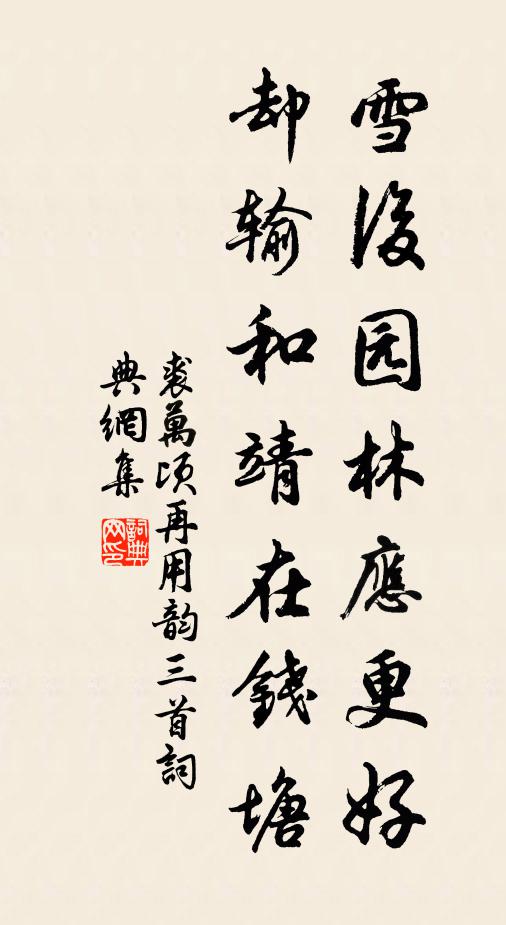 雪後园林應更好
却输和靖在錢塘
裘萬頃再用韵三首詞
典網集
詞典網印